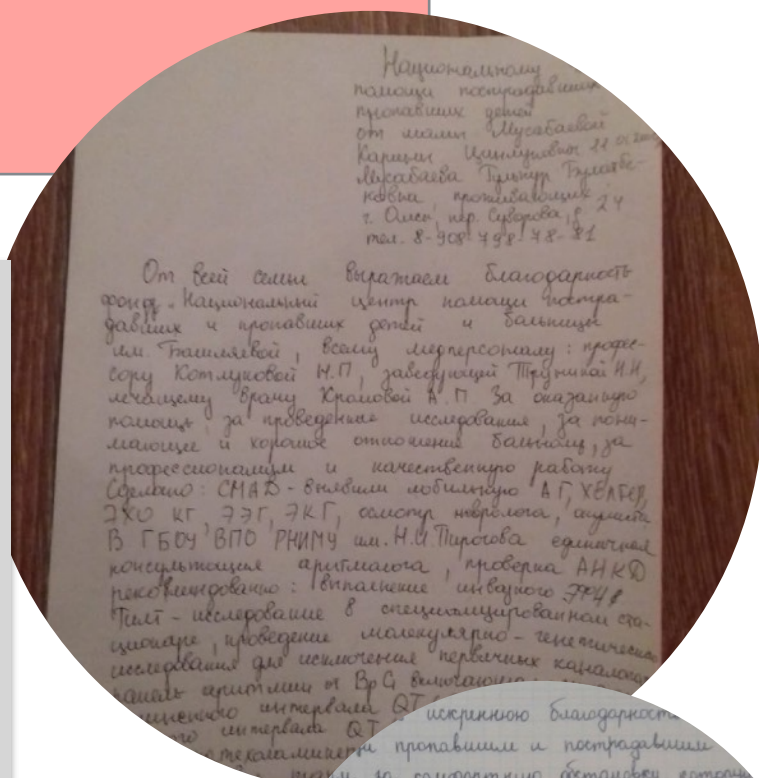 Национальному
помощи пострадавших
пропавших детей
от мамы Мусабаевой
Карины 11
Мусабаева Гульнур
проживающих
г. Омск, пер. Суворова, д 24
тел. 8-908-798-78-81
От всей семьи выражаем благодарность
фонду „Национальный центр помощи постра-
давших и пропавших детей и больницы
им. Башляевой, всему медперсоналу: профес-
сору Котлуковой Н.П, заведующей Труниной И.И,
лечащему врачу Храмовой А.П За оказанную
помощь, за проведенные исследования, за пони-
мающее и хорошое отношение больному, за
профессионализм и качественную работу
Сделано: СМАД - выявили лобильную АГ, ХОЛТЕР,
ЭХО КГ, ЭЭГ, ЭКГ, осмотр невролога, окулиста
В ГБОУ ВПО РНИМУ им. Н.И. Пирогова единичная
консультация аритмолога, проверка АНКД
рекомендованно: выполнение ЭФИ
Тилт - исследование в специализированном ста-
ционаре, проведение молекулярно - генетического
исследования для исключения первичных
панель аритмии
интервала QT
интервала QT
искреннюю благодарность
пропавшим и пострадавшим
за комфортную обстановку